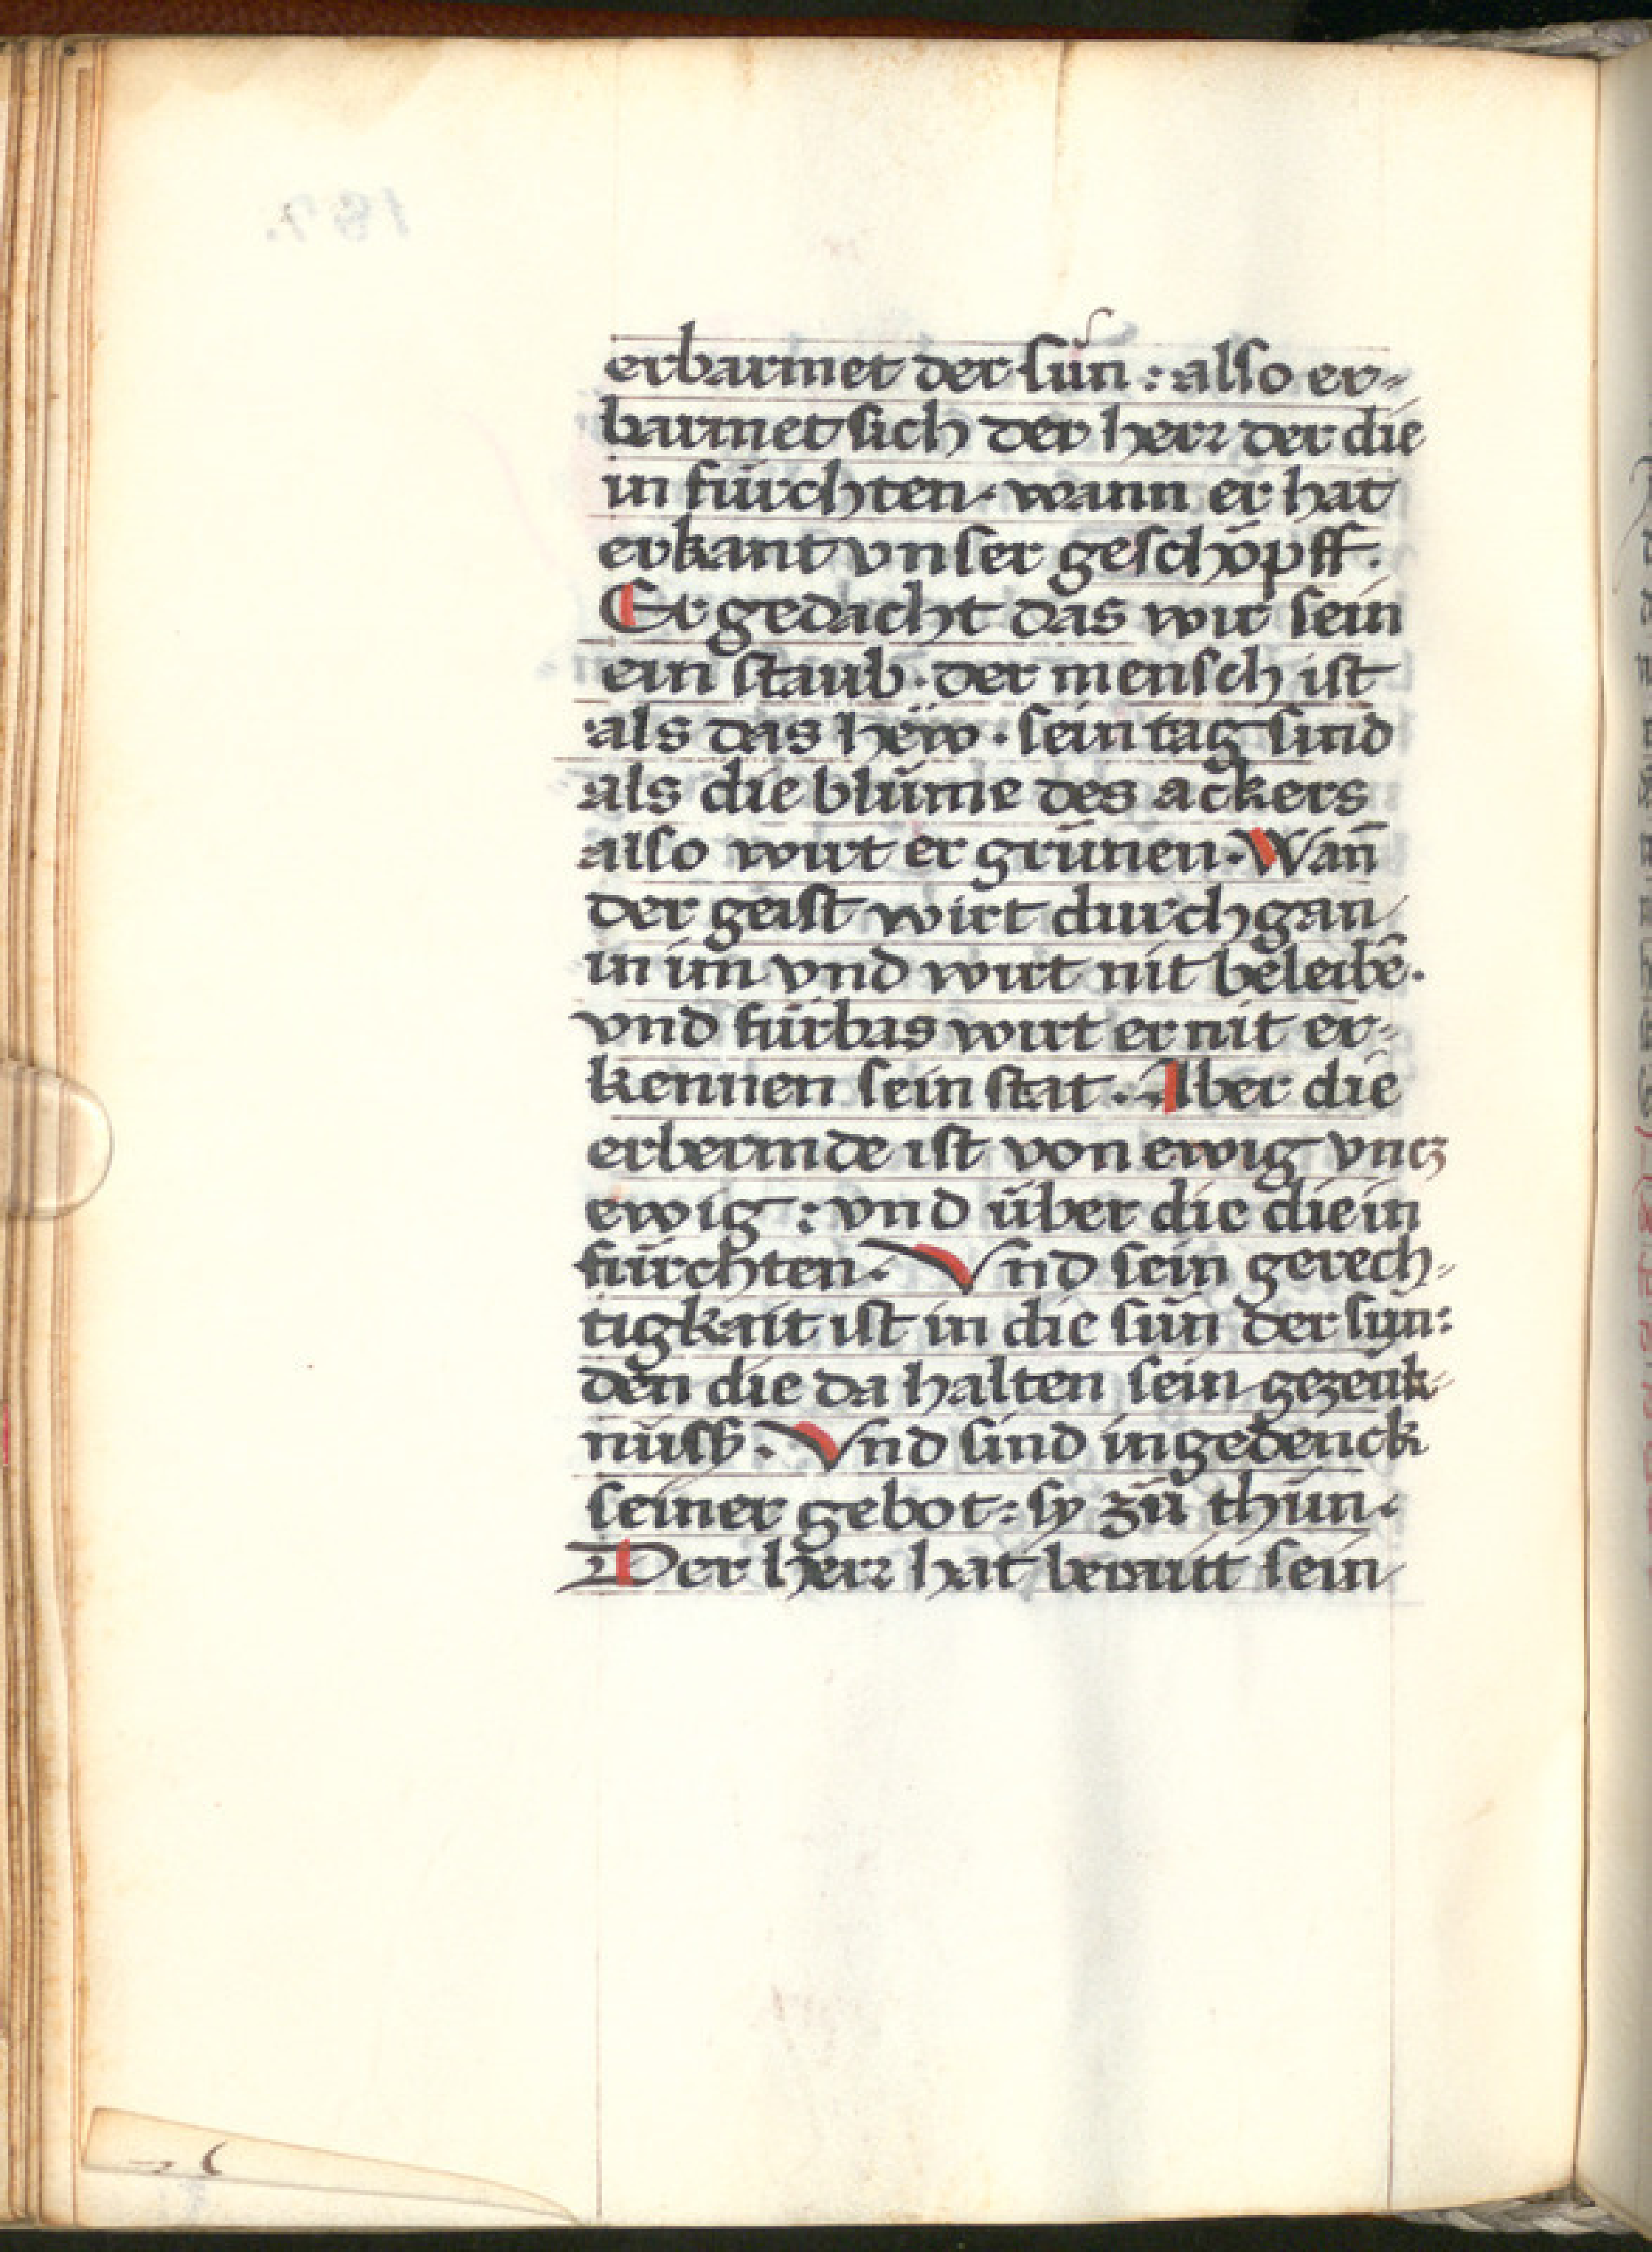 erbarmet der sün : also er⸗
barmet sich der herr der die
in fürchten · wann er hat
erkant vnser geschöpff ·
Er gedacht das wir sein
ein staub · der mensch ist
als das heẅ · sein tag sind
als die blůme des ackers
also wirt er grünen · Wañ
der geist wirt durchgan
in im vnd wirt nit beleibē ·
vnd fürbas wirt er nit er⸗
kennen sein stat · Aber die
erbermde ist von ewig vncz
ewig : vnd über die die in
fürchten · Vnd sein gerech⸗
tigkait ist in die sün der sun⸗
den die da halten sein gezeuk⸗
nüss · Vnd sind ingedenck
seiner gebot : sy zů thůn ·
Der herr hat berait sein